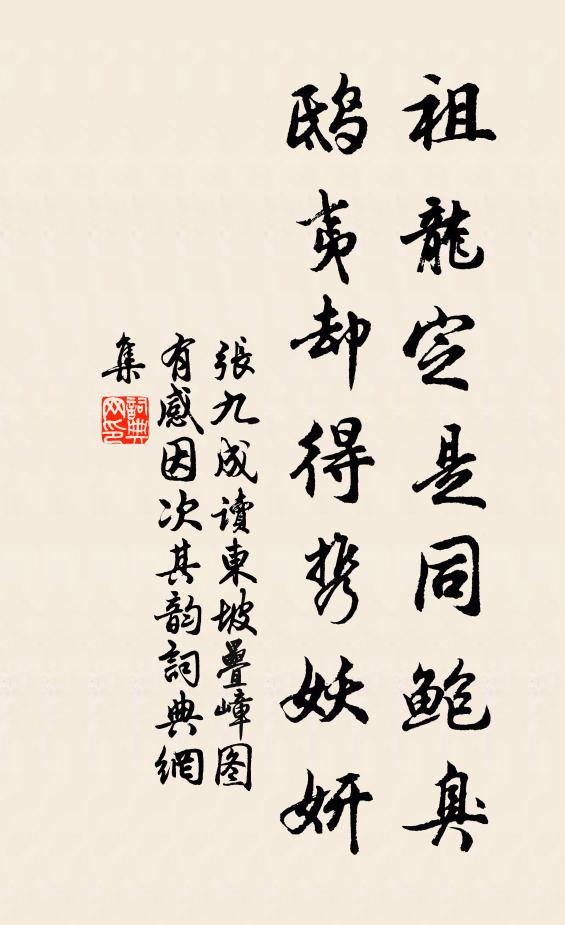 祖龍定是同鲍臭
鴟夷却得携妖妍
張九成讀東坡疊嶂图
有感因次其韵詞典網
集
詞典网印